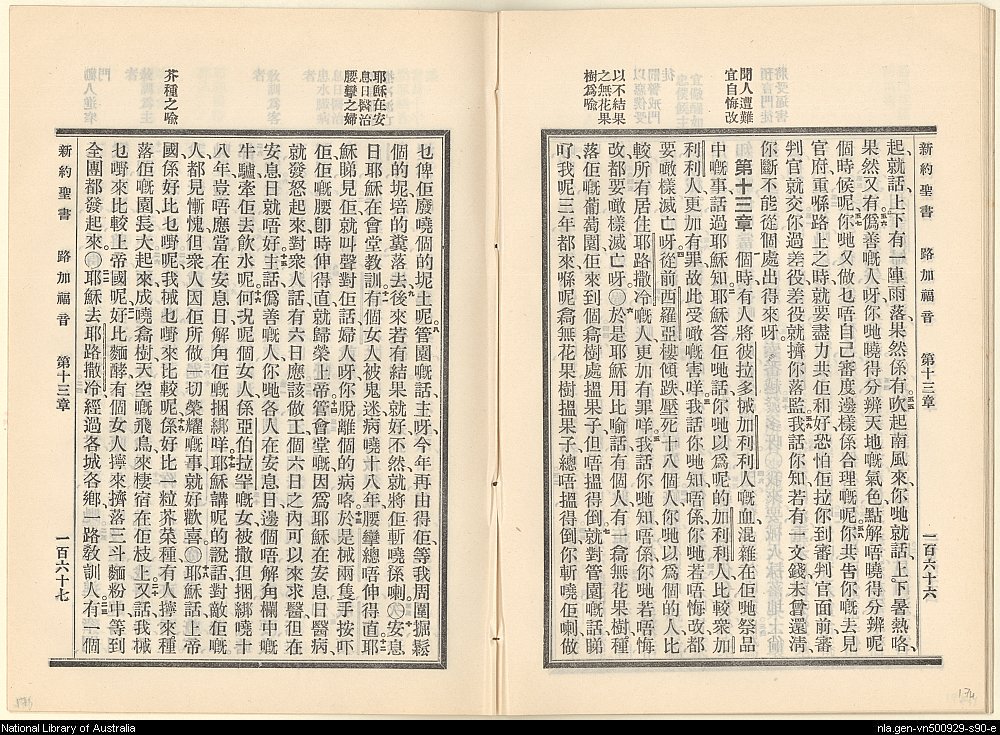 聞人遭難
宜自悔改
以不結果
之無花果
樹爲喩
新約聖書 路加福音 第十三章 一百六十六
起就話上下有一陣雨落果然係有吹起南風來你哋就話上下暑熱咯
果然又有爲善嘅人呀你哋曉得分辨天地嘅氣色點解唔曉得分辨呢
個時候呢你哋又做乜唔自己審度邊樣係合理嘅呢你共告你嘅去見
官府重喺路上之時就要盡力共佢和好恐怕佢拉你到審判官面前審
判官就交你過差役差役就擠你落監我話你知若有一文錢未曾還淸
你斷不能從個處出得來呀
第十三章 個時有人將彼拉多械加利利人嘅血混雜在佢哋祭品
中嘅事話過耶穌知耶穌答佢哋話你哋以爲呢的加利利人比較衆加
利利人更加有罪故此受噉嘅害咩我話你哋知唔係你哋若唔悔改都
要噉樣滅亡呀從前西羅亞樓傾跌壓死十八個人你哋以爲個的人比
較所有居住耶路撒冷嘅人更加有罪咩我話你哋知唔係你哋若唔悔
改都要噉樣滅亡呀於是耶穌用比喻話有個人有一喬無花果樹種
落佢嘅葡萄園佢來到個喬樹處搵果子但唔搵得倒就對管園嘅話睇
吓我呢三年都來喺呢喬無花果樹搵果子總唔搵得倒你斬曉佢喇做
耶穌在安
息日醫治
腰攣之婦
芥種之喩
乜俾佢廢曉個的坭土呢管園嘅話主呀今年再由得佢等我周圍掘鬆
個的坭培的糞落去後來若有結果就好不然就將佢斬曉係喇安息
日耶穌在會堂教訓有個女人被鬼迷病曉十八年腰攣總唔伸得直耶
穌睇見佢就叫聲對佢話婦人呀你脫離個的病咯於是械兩隻手按吓
佢佢嘅腰卽時伸得直就歸榮上帝管會堂嘅因爲耶穌在安息日醫病
就發怒起來對衆人話有六日應該做工個六日之內可以來求醫但在
安息日就唔好主話爲善嘅人你哋各人在安息日邊個唔解角欄中嘅
牛驢牽佢去飲水呢何况呢個女人係亞伯拉罕嘅女被撒但捆綁曉十
八年豈唔應當在安息日解角佢嘅捆綁咩耶穌講呢的說話對敵佢嘅
人都見慚愧但衆人因佢所做一切榮耀嘅事就好歡喜耶穌話上帝
國係好比乜嘢呢我械乜嘢來比較呢係好比一粒芥菜種有人擰來種
落佢嘅園長大起來成曉喬樹天空嘅飛鳥來棲宿在佢枝上又話我械
乜嘢來比較上帝國呢好比麵酵有個女人擰來擠落三斗麵粉中等到
全團都發起來耶穌去耶路撒冷經過各城各鄉一路敎訓人有一個
新約聖書 路加福音 第十三章 一百六十七
174
National Library of Australia
nla.gen-vn500929-s90-e